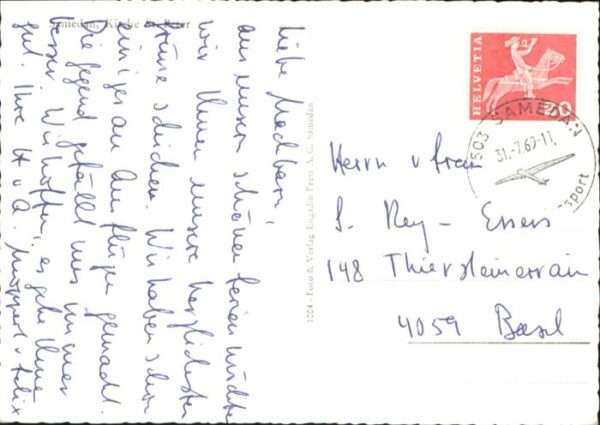 Samedan, Kirche St. Peter
Liebe Nachbarn,
aus unseren schönen Ferien möchten
wir Ihnen unsere herzlichsten
Grüsse schicken. Wir haben schon
einiges an Ausflügen gemacht.
Die Gegend gefällt uns immer
besser. Wir hoffen, es gehe Ihnen
gut. Ihre H. u. A. u. Felix
1004 - Foto & Verlag Engadin Press A. G. Samedan
HELVETIA
20
7503 SAMEDAN
31.-7.69-11
sport
Herrn u Frau
S. Rey - Essers
148 Thiersteinerrain
4059 Basel